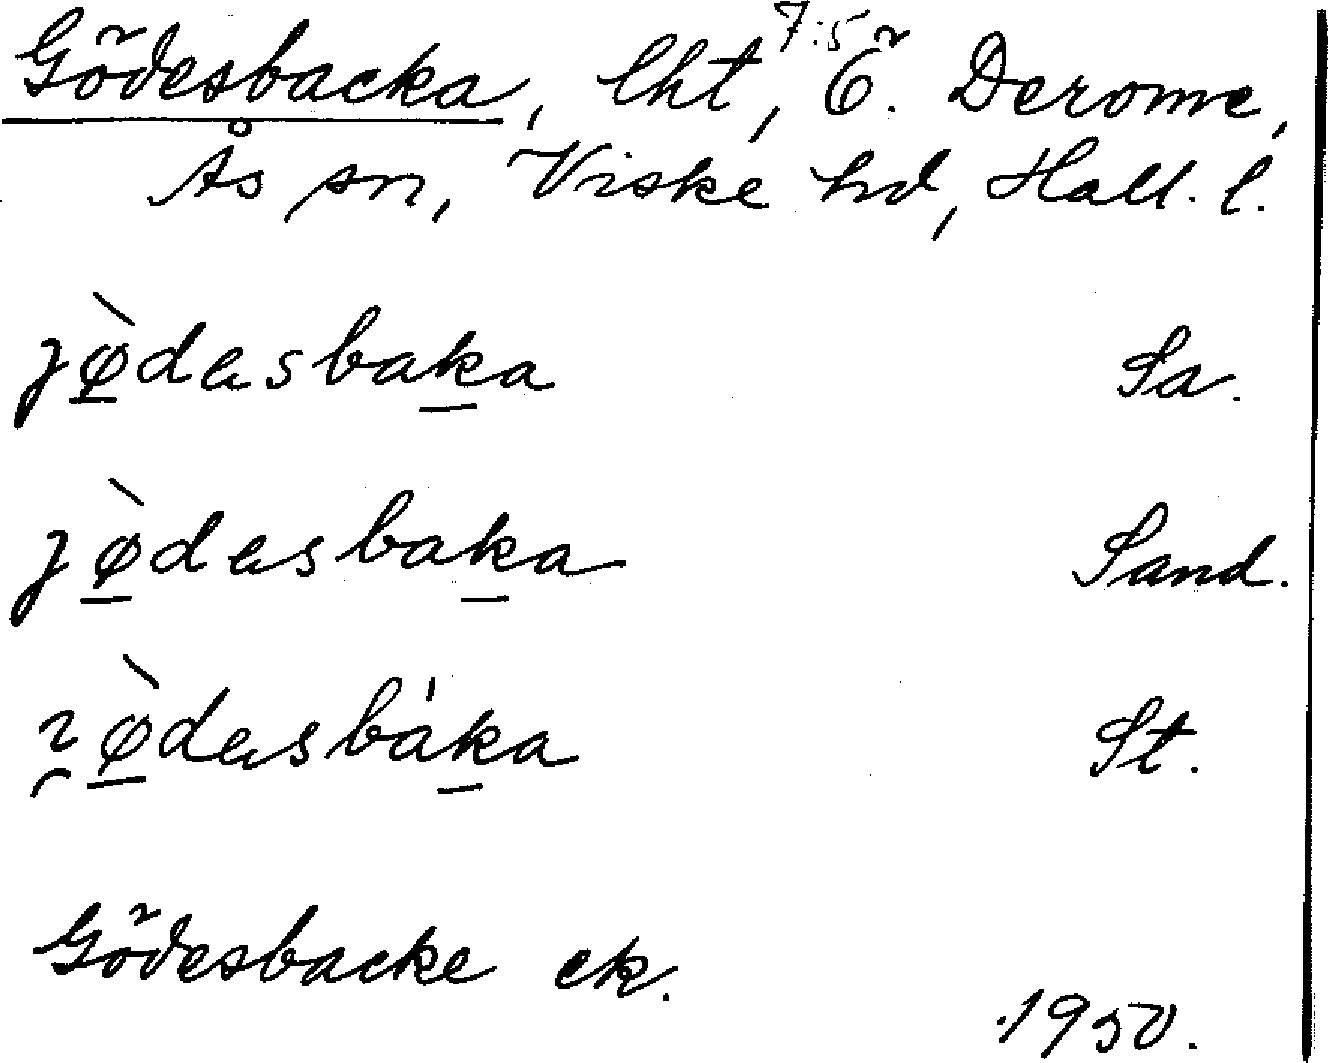 7:5
Gödesbacka, lht, Ö. Derome,
Ås sn, Viske hd, Hall. l.
jø̀dəsbaka Sa.
jø̀dəsbaka Sand.
ø̀dəsbáka St.
Gödesbacke ek.
1950.